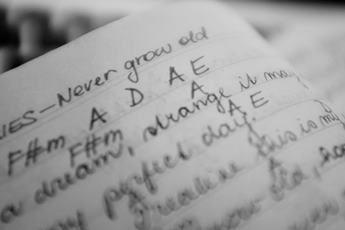 IES - Never grow old
F#m A D A E
a dream, strange it may
F#m A A E
my perfect day.
realise this is my
grow old,